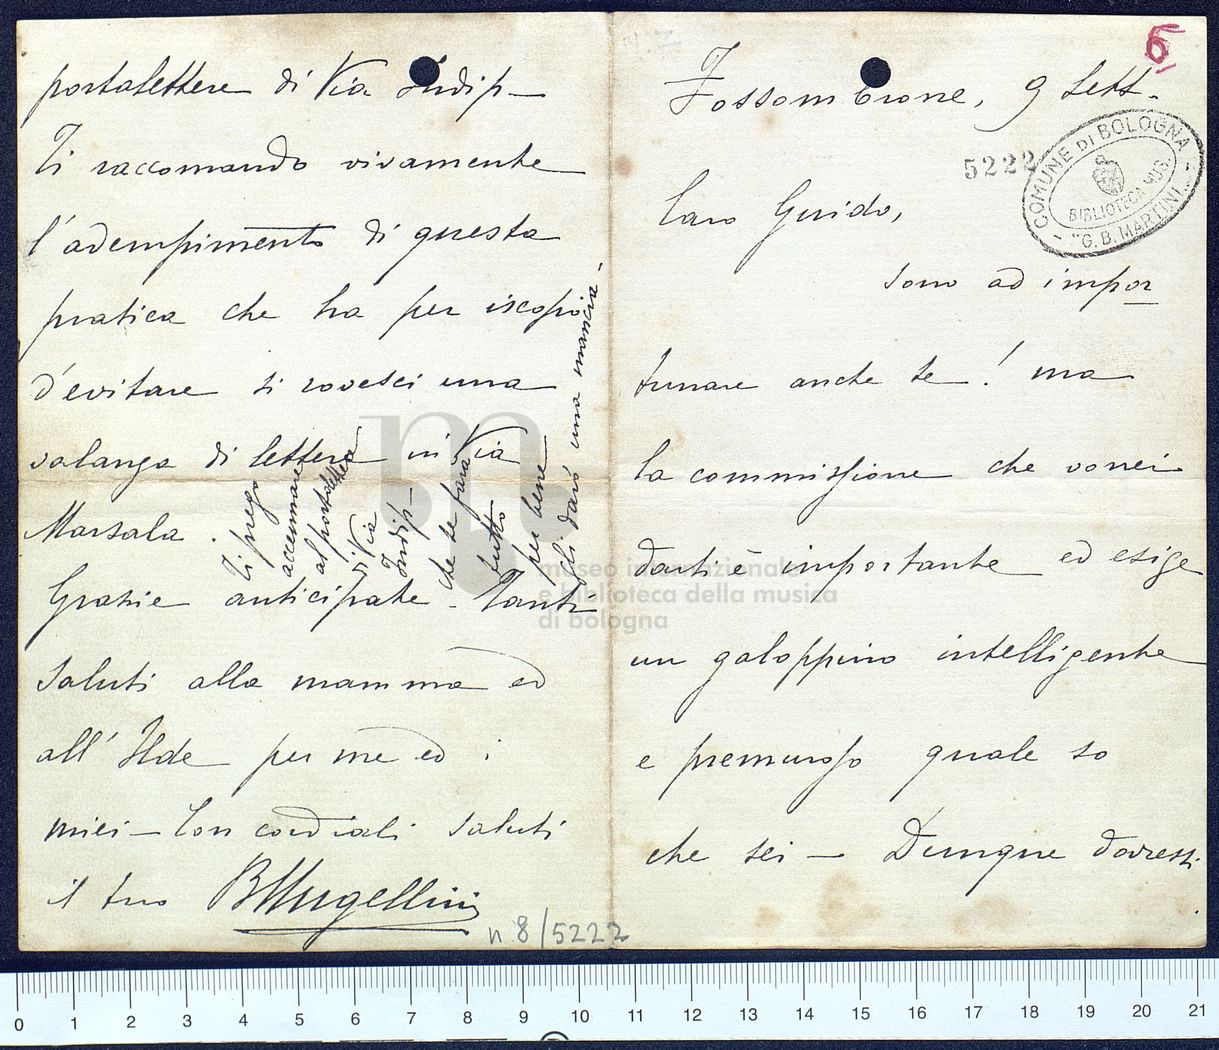 Fossombrone, 9 Sett.
Caro Guido,
sono ad impor
tunare anche te! ma
la commissione che vorrei
darti è importante ed esige
un galoppino intelligente
e premuroso quale so
che sei — Dunque dovresti
portalettere di Via Indip—
Ti raccomando vivamente
l'adempimento di questa
pratica che ha per iscopo
d'evitare si rovesci una
valanga di lettere in Via
Marsala.
Grazie anticipate. Tanti
saluti alla mamma ed
all' Ilde per me ed i
miei — Con cordiali saluti
il tuo BMugellini
Ti prego
accennare
al portalettere
di Via
Indip—
che se farà
tutto
per bene
gli darò una mancia—
6
5222
COMUNE DI BOLOGNA
BIBLIOTECA MUS.
"G. B. MARTINI"
n 8/5222
museo internazionale
e biblioteca della musica
di bologna
0 1 2 3 4 5 6 7 8 9 10 11 12 13 14 15 16 17 18 19 20 21